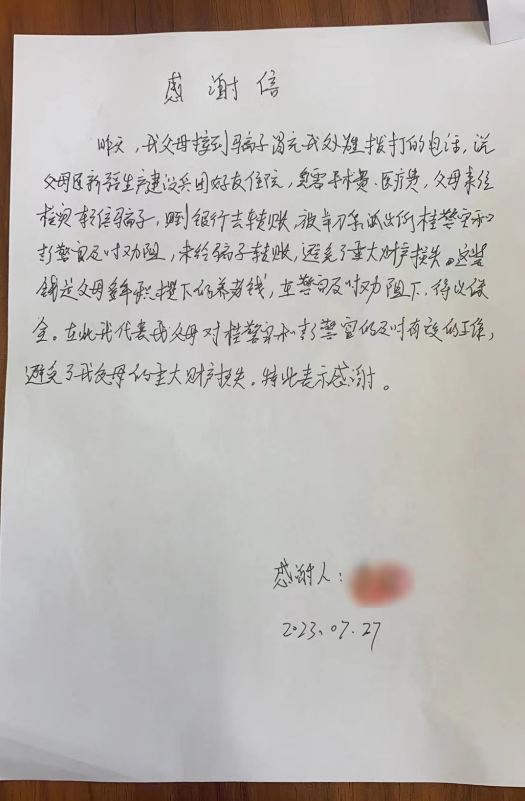 感谢信
昨天，我父母接到骗子冒充我处难拨打的电话，说
父母在新疆生产建设兵团好友住院，急需手术费、医疗费，父母未经
核实轻信骗子，到银行去转账，被派出所桂警官和
彭警官及时劝阻，未给骗子转账，避免了重大财产损失。这些
钱是父母多年积攒下的养老钱，在警官及时劝阻下，得以保
全。在此我代表我父母对桂警官和彭警官的及时有效的工作，
避免了我父母的重大财产损失。特此表示感谢。
感谢人：
2023.07.27